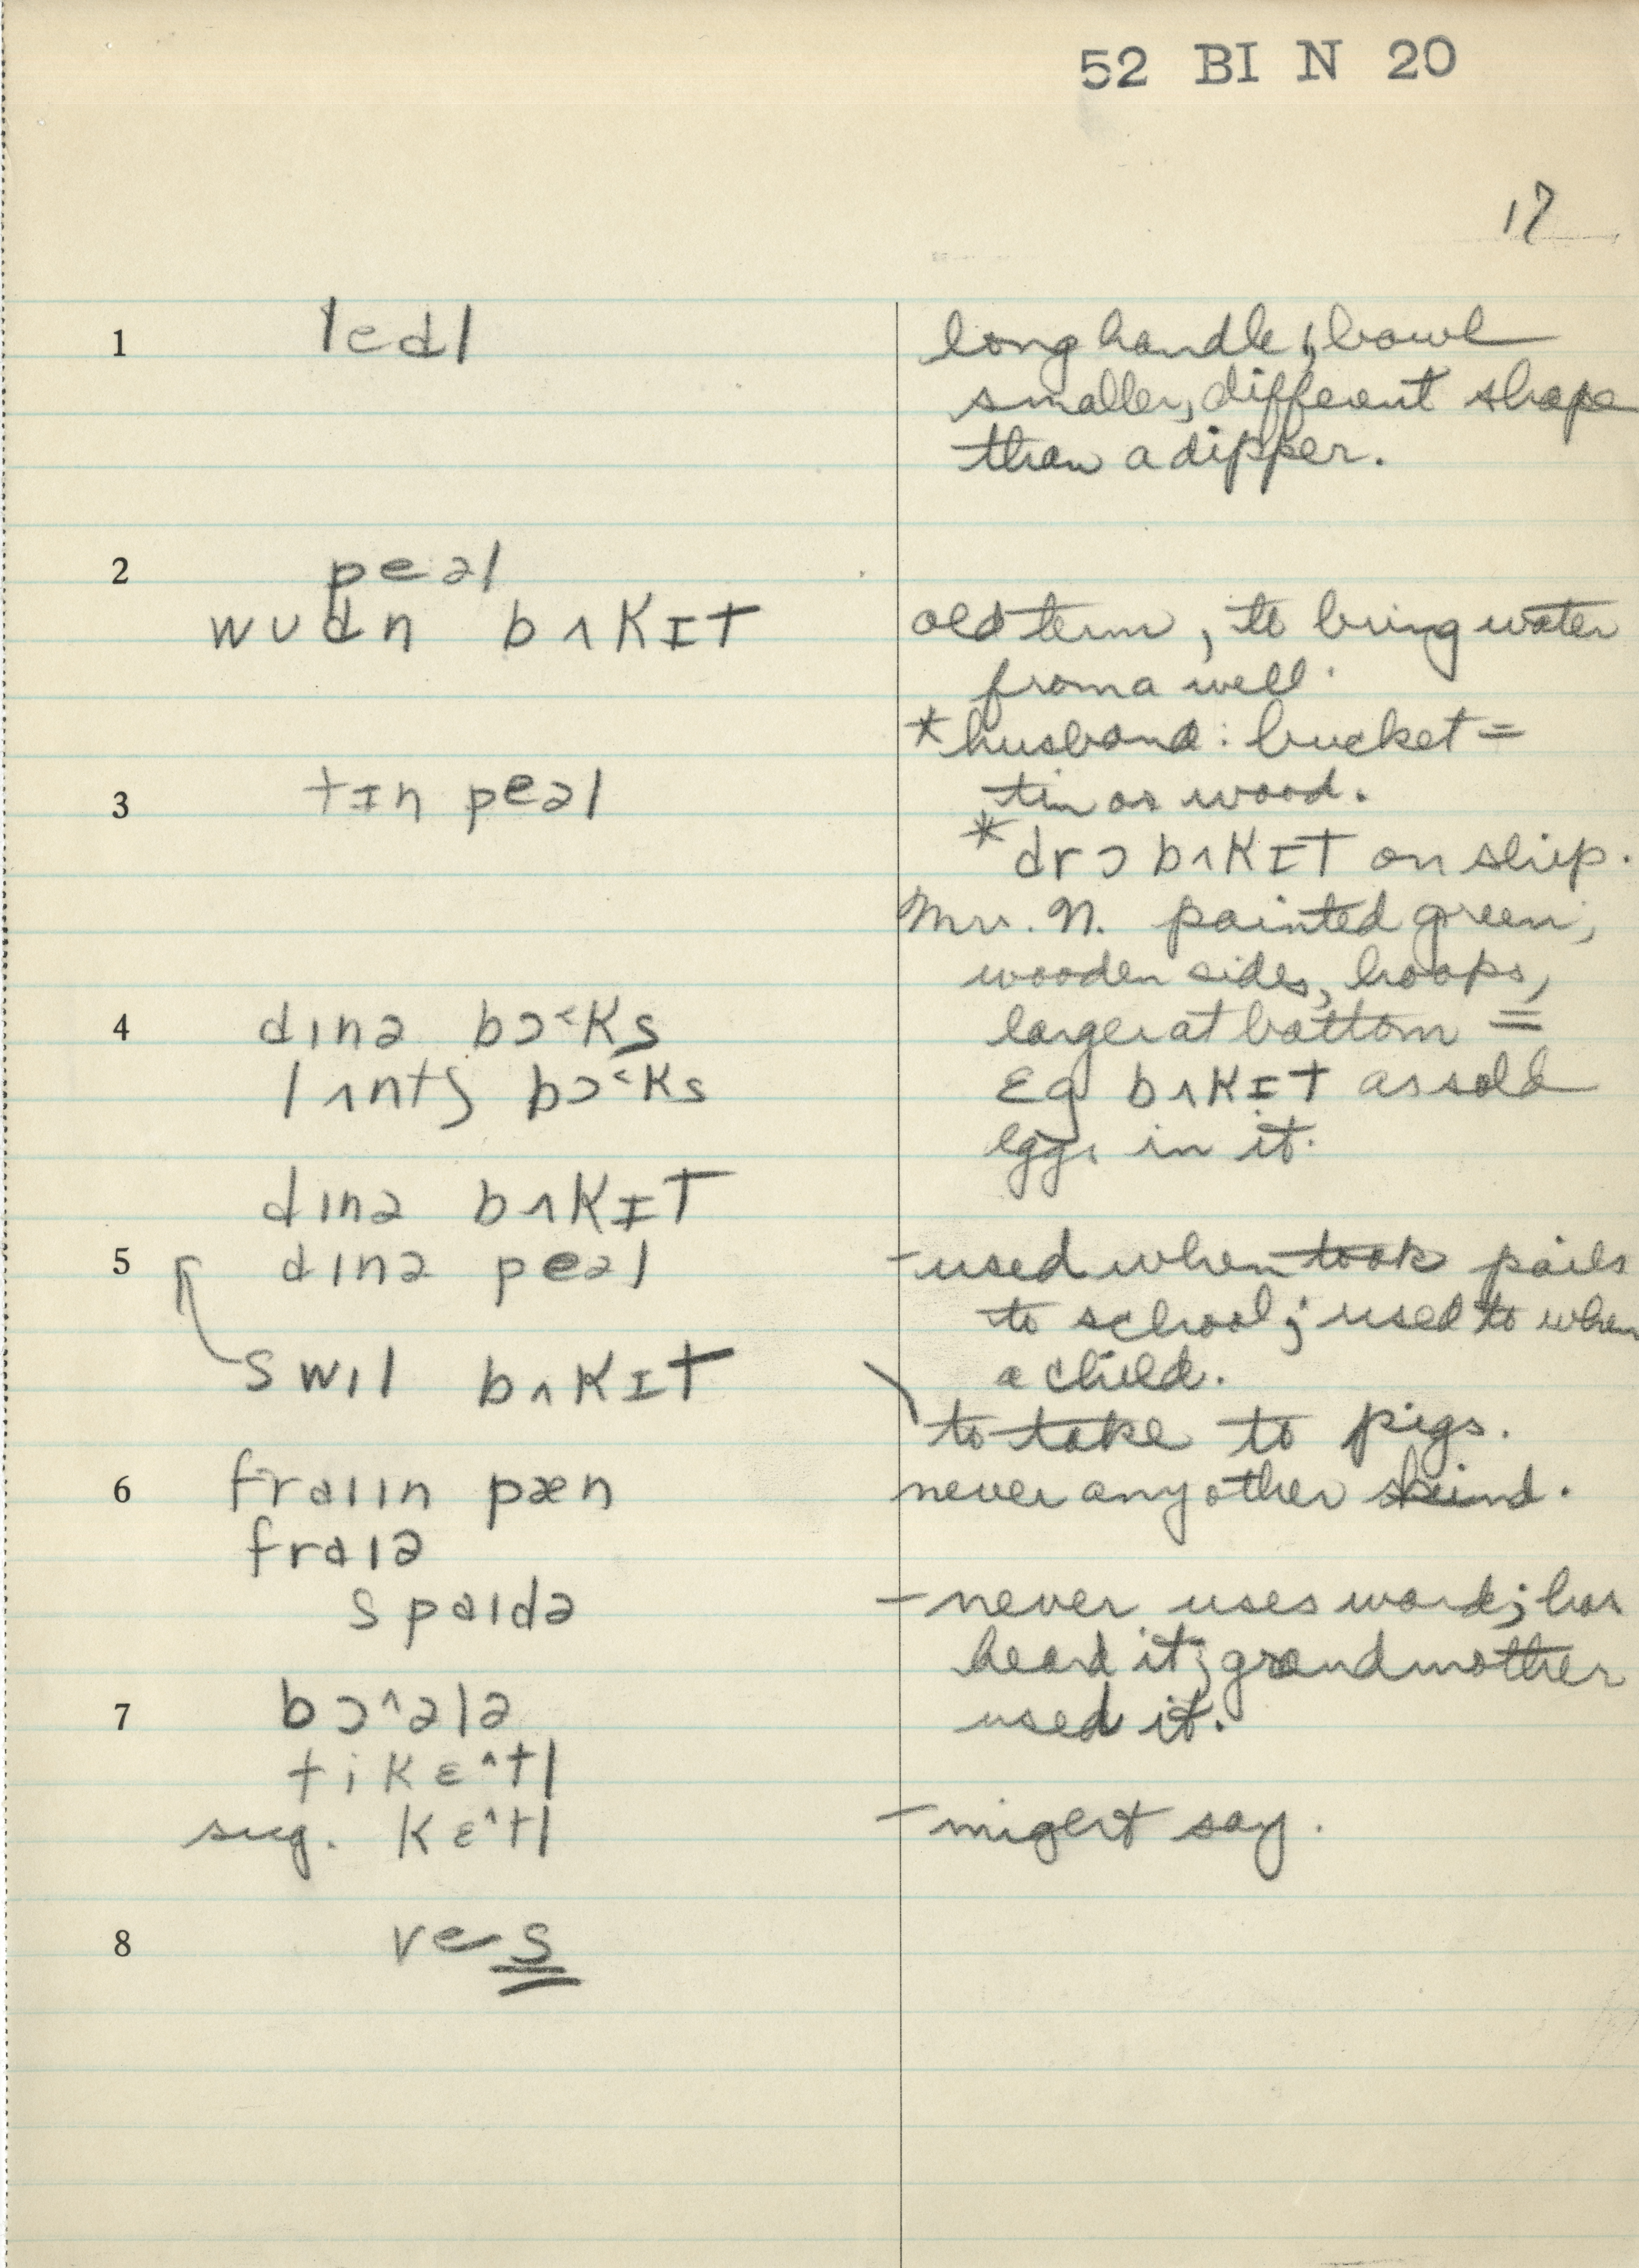 52 BI N 20
17
1 ledl long handle, bowl
smaller, different shape
than a dipper.
2 peəl
wʊdn bʌkɪt old term, to bring water
from a well.
*husband: bucket =
3 tɪn peəl tin or wood.
*drɔ bʌkɪt on ship.
Mr. N. painted green,
wooden sides, hoops,
4 dɪnə bɔ˂ks larger at bottom =
lʌntʃ bɔ˂ks ɛg bʌkɪt as sold
eggs in it.
dɪnə bʌkɪt
5 dɪnə peəl - used when took pails
to school; used to when
swɪl bʌkɪt a child.
to take to pigs.
6 fraɪɪn pæn never any other kind.
fraɪə
spaɪdə - never uses word; has
heard it; grandmother
7 bɔ^ələ used it.
tikɛ^tl
sug. kɛ^tl - might say.
8 ves